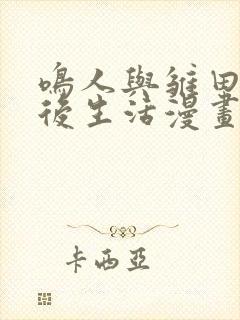 鳴人與雛田
後生活漫畫
卡西亞